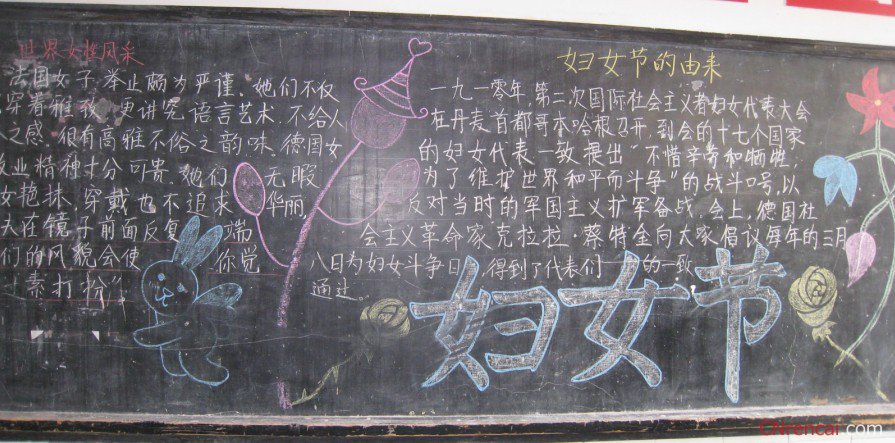 世界女性风采
法国女子举止颇为严谨。她们不仅
穿着雅致,更讲究语言艺术,不给人
之感,很有高雅不俗之韵味。德国女
业精神十分可贵。她们 无暇
女艳抹,穿戴也不追求 华丽,
夫在镜子前面反复 端
们的风貌会使 你觉
素打扮”
妇女节的由来
一九一零年,第二次国际社会主义者妇女代表大会
在丹麦首都哥本哈根召开,到会的十七个国家
的妇女代表一致提出“不惜辛劳和牺牲,
为了维护世界和平而斗争”的战斗口号,以
反对当时的军国主义扩军备战,会上,德国社
会主义革命家克拉拉·蔡特金向大家倡议每年的三月
八日为妇女斗争日,得到了代表们 的一致
通过。
妇女节
CNrencai.com